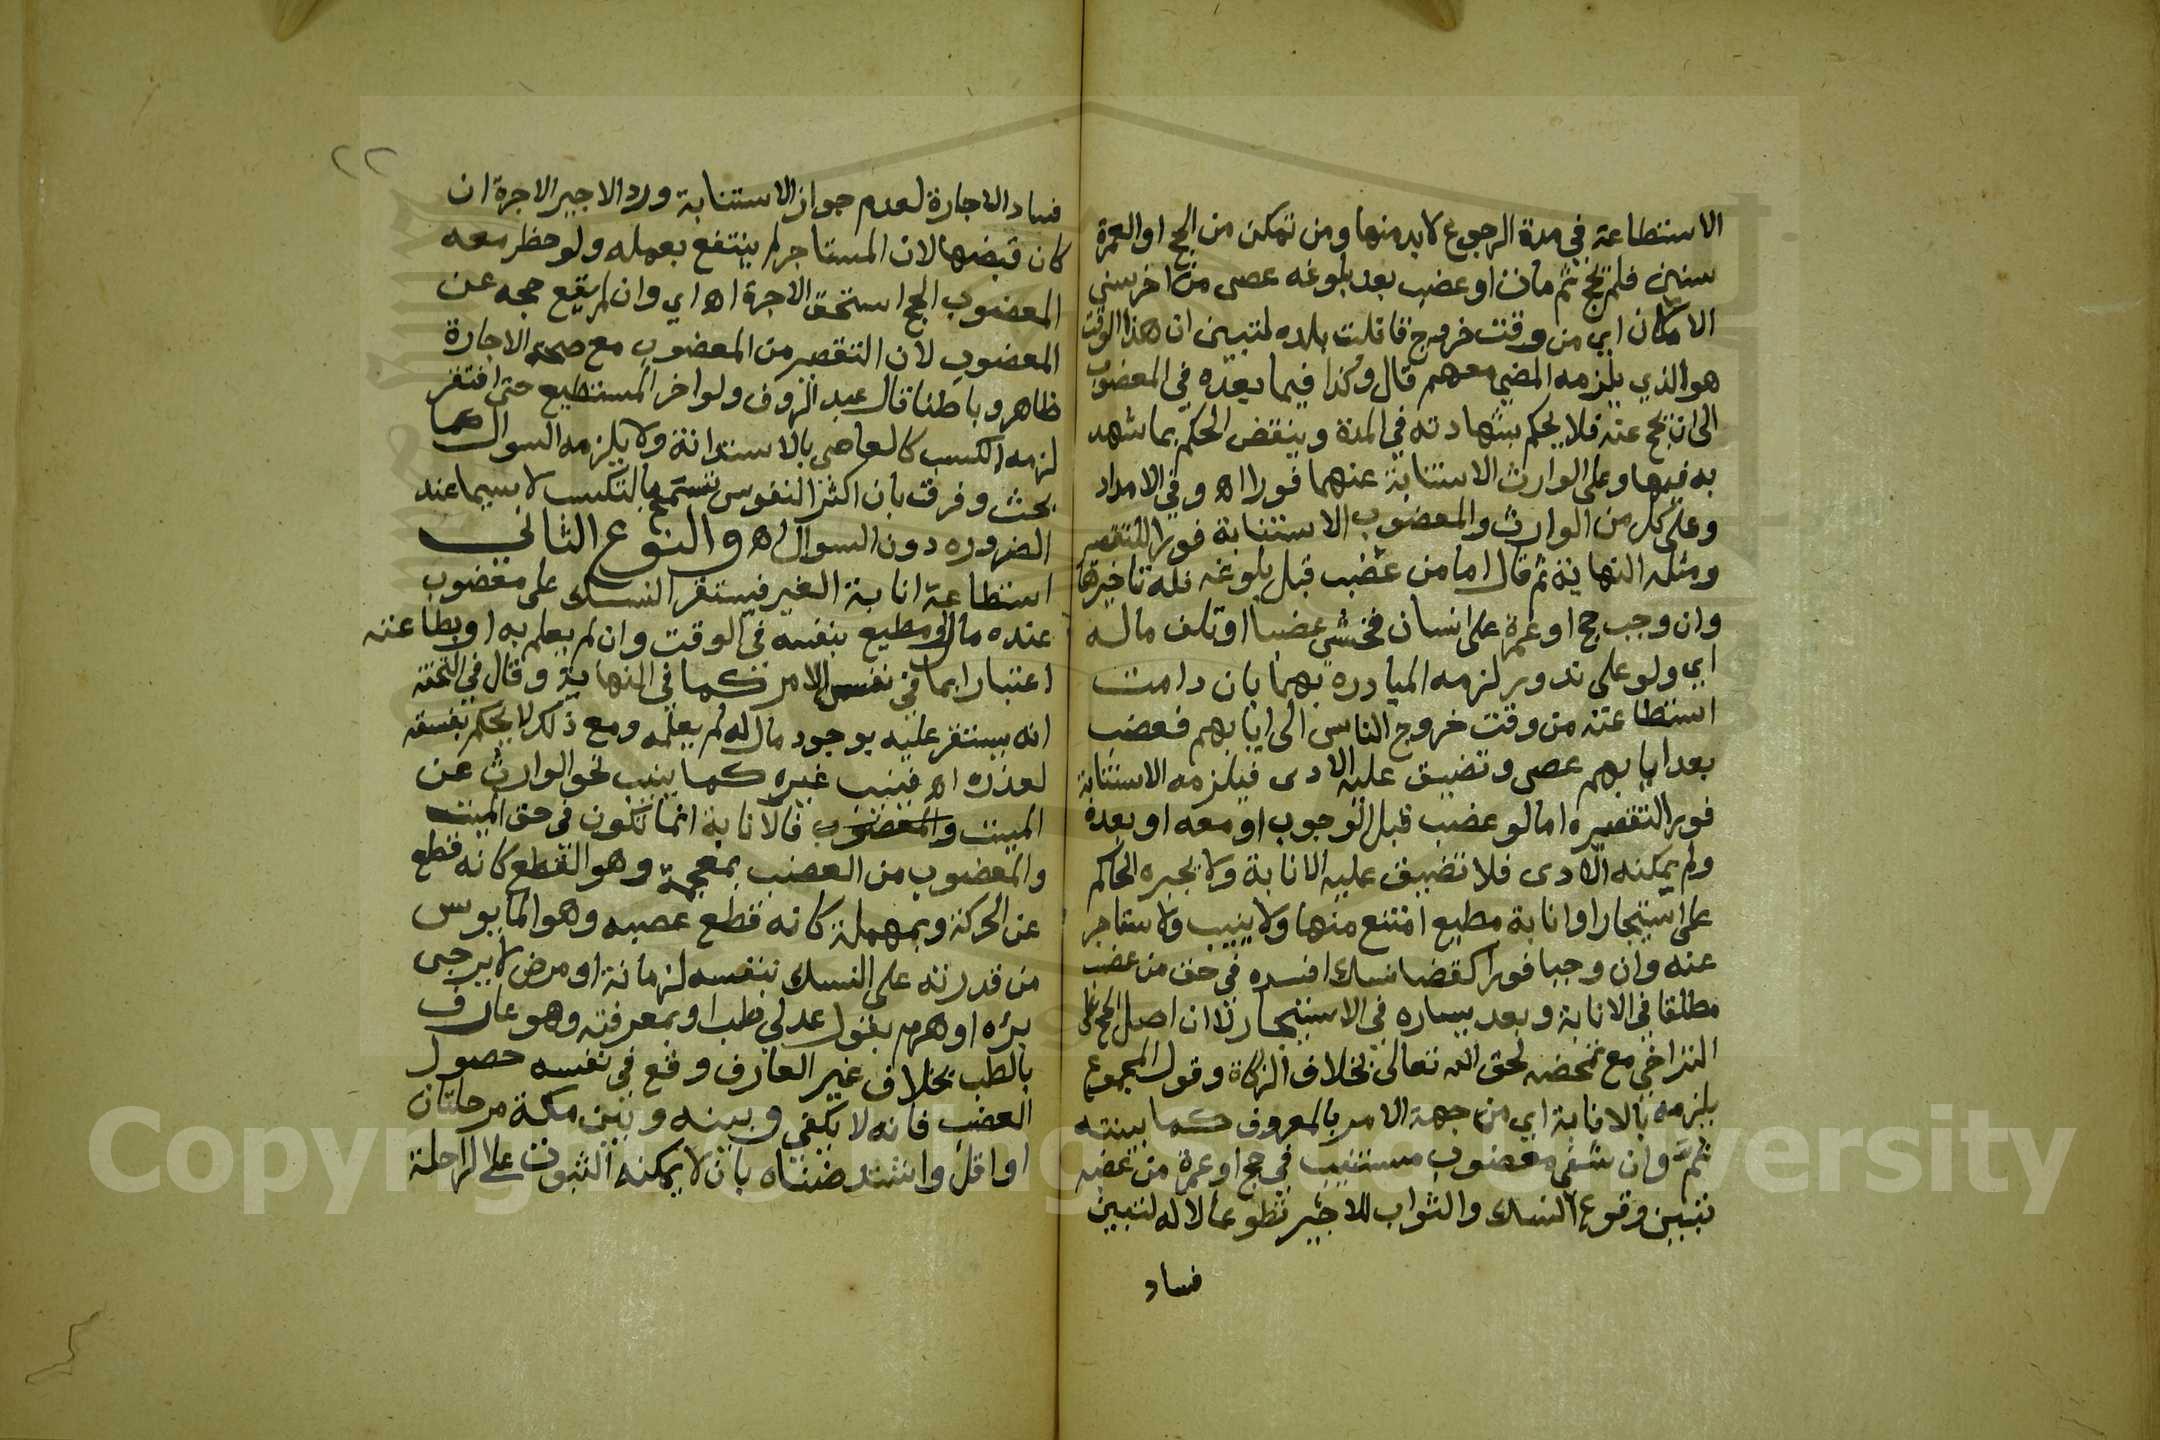 الاستطاعة في مدة الرجوع لابد منها ومن تمكن من الحج او العمرة
سنين فلم يحج ثم مات او عضب بعد بلوغه عصى من اخر سني
الامكان اي من وقت خروج قافلت بلده لتبين ان هذا الوقت
هو الذي يلزمه المضي معهم قال وكذا فيما بعده في المعضوب
الى ان يحج عنه فلا يحكم بشهادته في المدة وينقض الحكم بما شهد
به فيها وعلى الوارث الاستنابة عنهما فورا اه وفي الامداد
وعلى كل من الوارث والمعضوب الاستنابة فورا للتقصير
ومثله النهاية ثم قال اما من عضب قبل بلوغه فله تاخيرها
وان وجب حج او عمرة على انسان فخشي عضبا او تلف ماله
اي ولو على تدوير لزمه المبادرة بهما بان دامت
استطاعته من وقت خروج الناس الى ايابهم فعضب
بعد ايابهم عصى وتضيق عليه الادى فيلزمه الاستنابة
فورا لتقصيره اما لو عضب قبل الوجوب او معه او بعده
ولم يمكنه الادى فلا تضيق عليه الانابة ولا يجبره الحاكم
على استيجار او انابة مطيع امتنع منها ولا ينيب ولا يستاجر
عنه وان وجبا فورا كقضا نسك افسده في حق من عضب
مطلقا في الانابة وبعد يساره في الاستيجار لان اصل الحج على
التراخي مع تمحضه لحق الله تعالى بخلاف الزكاة وقول المجموع
يلزمه بالانابة اي من جهة الامر بالمعروف كما بينته
ثم وان شفي معضوب مستنيب في حج او عمرة من عضبه
تبين وقوع النسك والثواب للاجير تطوعا لا له لتبين
فساد
٢٢
فساد الاجارة لعدم جواز الاستنابة ورد الاجير الاجرة ان
كان قبضها لان المستاجر لم ينتفع بعمله ولو حظر معه
المعضوب الحج استحق الاجرة اه اي وان لم يقع حجه عن
المعضوب لان التقصير من المعضوب مع صحة الاجارة
ظاهر وباطنا قال عبد الروف ولو اخر المستطيع حتى افتقر
لزمه الكسب كالعاصي بالاستدانة ولا يلزمه السوال كما
بحث وفرق بان اكثر النفوس تسمح بالتكسب لا سيما عند
الضروره دون السوال اه والنوع الثاني
استطاعة انابة الغير فيستقر النسك على معضوب
عنده مال او مطيع بنفسه في الوقت وان لم يعلم به او بطاعته
اعتبارا بما في نفس الامر كما في النهاية وقال في التحفة
انه يستقر عليه بوجود مال له لم يعلمه ومع ذلك لا يحكم بفسقه
لعذره اه فينيب غيره كما ينيب نحو الوارث عن
الميت والمعضوب فالانابة انما تكون في حق الميت
والمعضوب من العضب بمعجمة وهو القطع كانه قطع
عن الحركة وبمهملة كانه قطع عصبه وهو المايوس
من قدرته على النسك بنفسه لزمانة او مرض لا يرجى
برؤه او هرم بقول عدلي طب او بمعرفته وهو عارف
بالطب بخلاف غير العارف وقع في نفسه حصول
العضب فانه لا يكفي وبينه وبين مكة مرحلتان
او اقل واشتد ضناه بان لا يمكنه الثبوت على الراحلة
Copyright © King Saud University